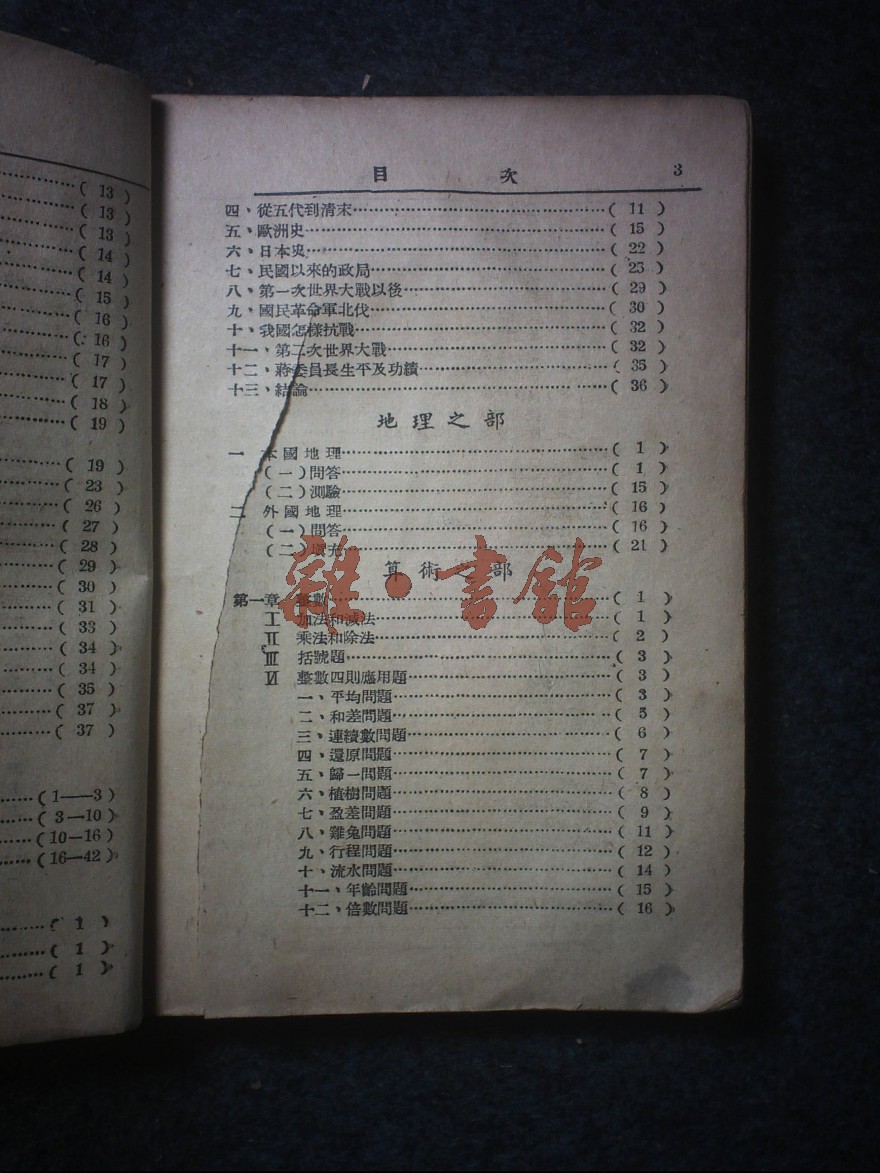 ( 13 )
( 13 )
( 13 )
( 14 )
( 14 )
( 15 )
( 16 )
( 16 )
( 17 )
( 17 )
( 18 )
( 19 )
( 19 )
( 23 )
( 26 )
( 27 )
( 28 )
( 29 )
( 30 )
( 31 )
( 33 )
( 34 )
( 34 )
( 35 )
( 37 )
( 37 )
(1——3)
(3—10)
(10—16)
(16—42)
( 1 )
( 1 )
( 1 )
目 次 3
四、從五代到清末……( 11 )
五、歐洲史……( 15 )
六、日本史……( 22 )
七、民國以來的政局……( 25 )
八、第一次世界大戰以後……( 29 )
九、國民革命軍北伐……( 30 )
十、我國怎樣抗戰……( 32 )
十一、第二次世界大戰……( 32 )
十二、蔣委員長生平及功績……( 35 )
十三、結論……( 36 )
地理之部
一 本國地理……( 1 )
(一)問答……( 1 )
(二)測驗……( 15 )
二 外國地理……( 16 )
(一)問答……( 16 )
(二)填充……( 21 )
算術之部
第一章 整數……( 1 )
I 加法和減法……( 1 )
II 乘法和除法……( 2 )
III 括號題……( 3 )
IV 整數四則應用題……( 3 )
一、平均問題……( 3 )
二、和差問題……( 5 )
三、連續數問題……( 6 )
四、還原問題……( 7 )
五、歸一問題……( 7 )
六、植樹問題……( 8 )
七、盈差問題……( 9 )
八、雞兔問題……( 11 )
九、行程問題……( 12 )
十、流水問題……( 14 )
十一、年齡問題……( 15 )
十二、倍數問題……( 16 )
雜·書館